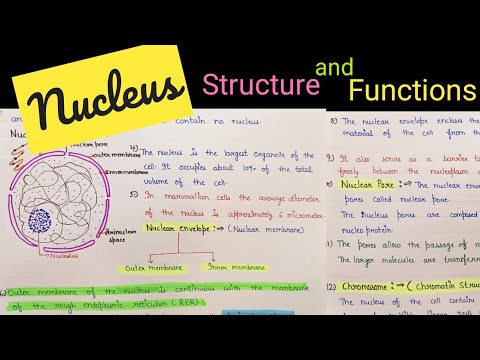 Nucleus
Structure and Functions
contain no nucleus.
Nu
nuclear pore
outer membrane
inner membrane
perinuclear
space
Nucleolus
4) The nucleus is the largest organelle of the
cell. It occupies about 10% of the total
volume of the cell.
5) In mammalian cells the average diameter
of the nucleus is approximately 6 micrometer.
Nuclear envelope :→ (Nuclear membrane)
Outer membrane
Inner membrane
6) Outer membrane of the nucleus is continuous with the membrane
of the rough endoplasmic reticulum (RER).
8) The nuclear envelope encloses the
material of the cell from the
9) It also serves as a barrier to
freely between the nucleoplasm
Nuclear Pore :→ The nuclear enve
pores called nuclear pore.
The nucleus pores are composed
nucleoprotein.
11) The pores allow the passage of m
The larger molecules are transferr
12) Chromosome :→ (Chromatin Struct
The nucleus of the cell contains